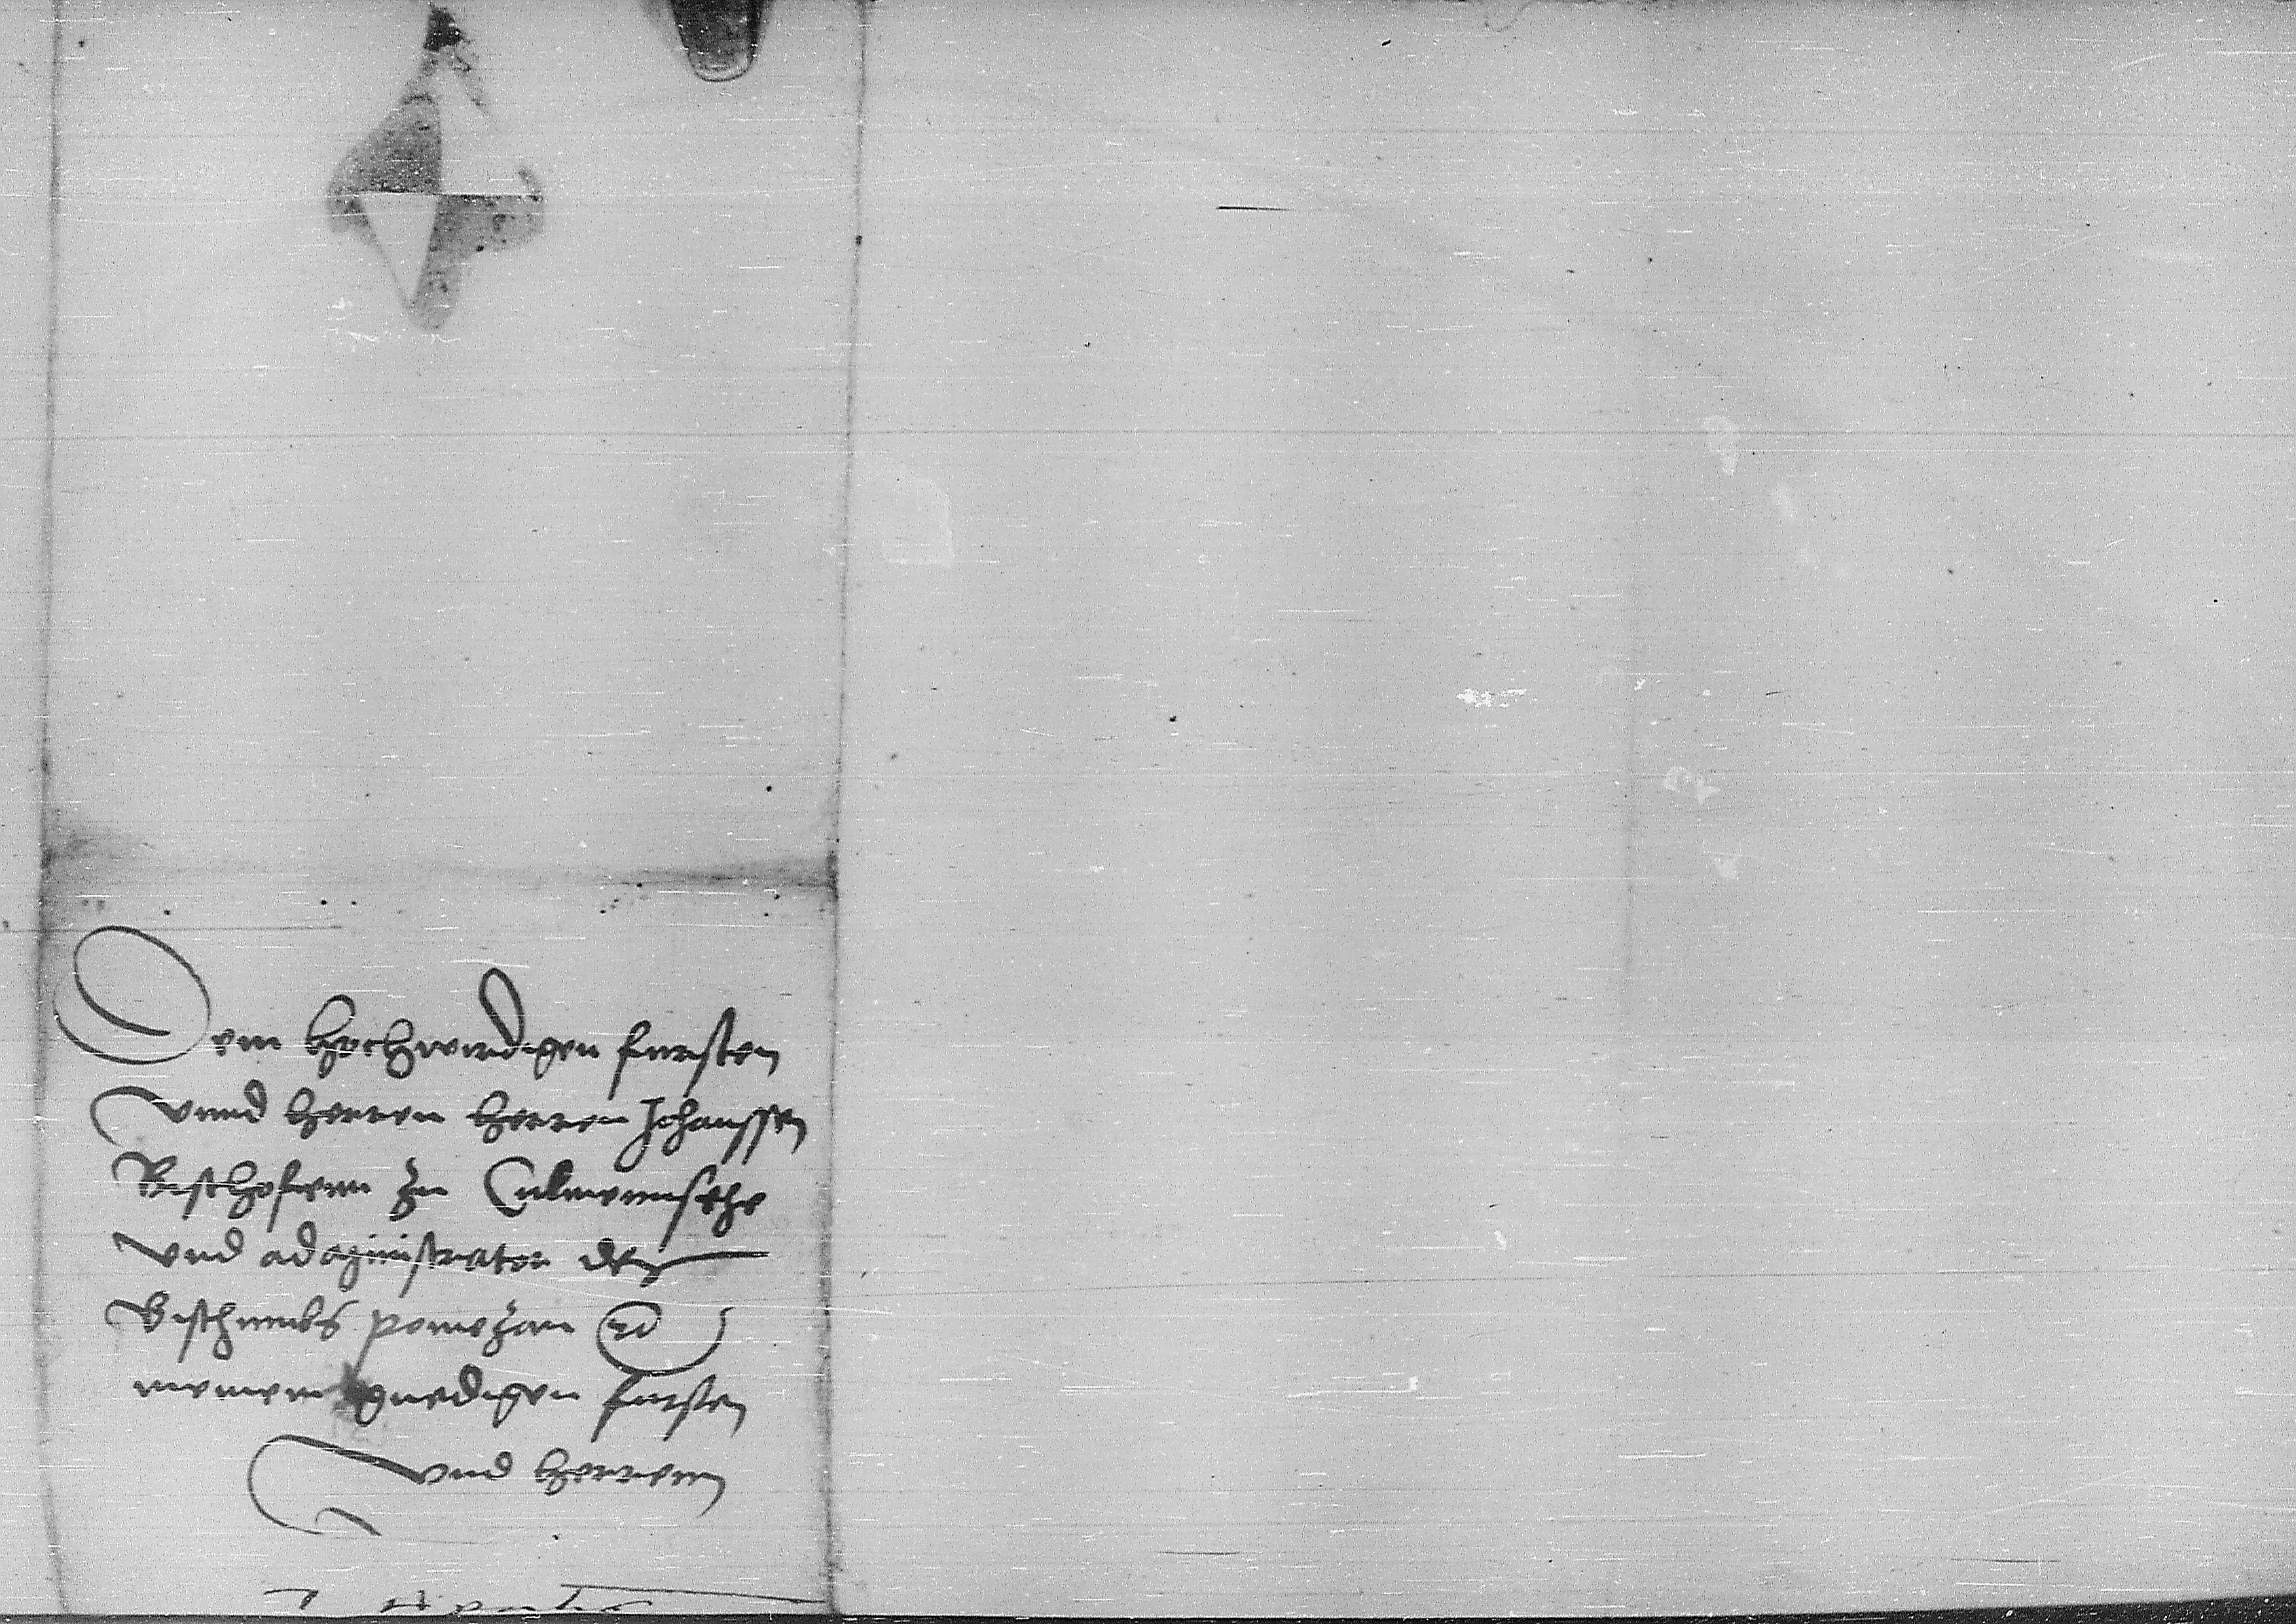 Dem hochwirdigen fursten
vnnd herren herren Johanssen
Bischofenn zu Culmennsehe
vnd administrator des
Bisthumbs pomezan ꝛc
meinem gnedigen fursten
vnd herrenn